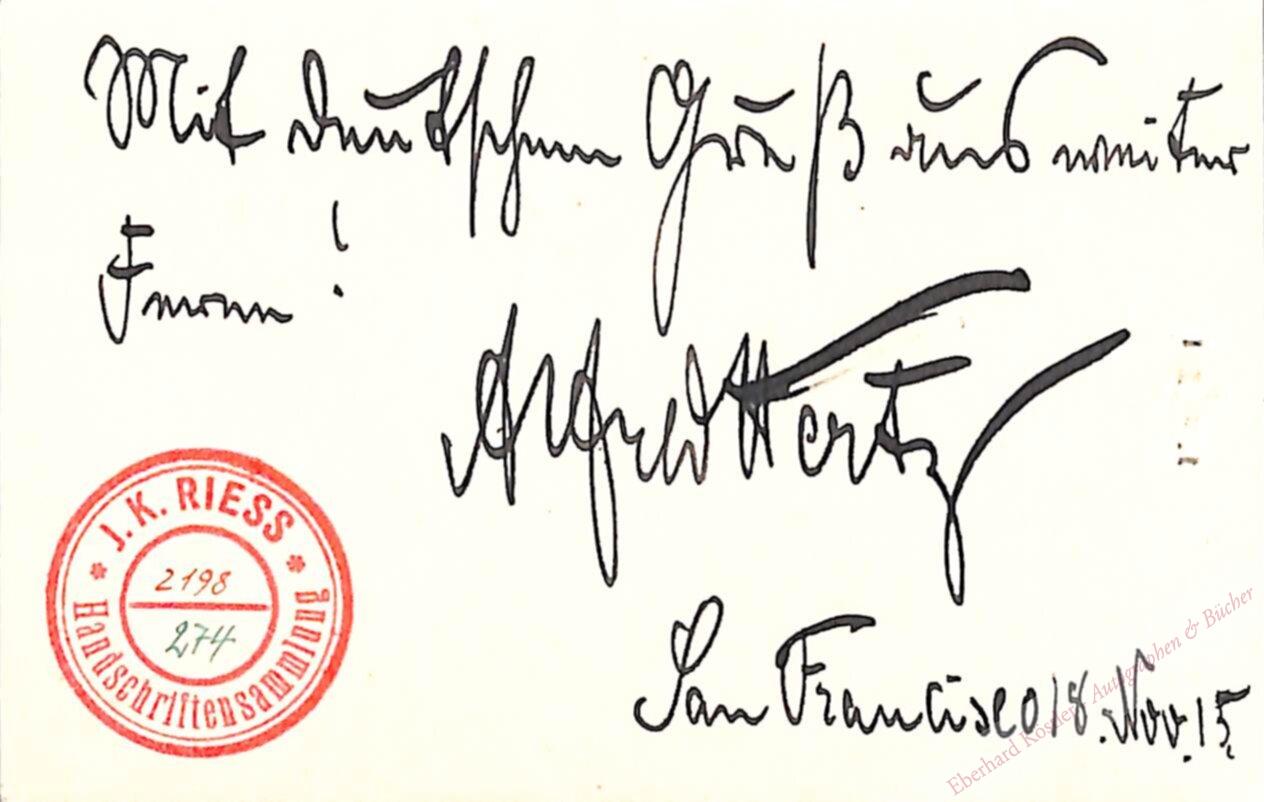 Mit deutschem Gruß aus weiter
Ferne!
Alfred Hertz
San Francisco 18. Nov. 15.
J. K. RIESS
2198
274
* Handschriftensammlung *
Eberhard Köstler Autographen & Bücher